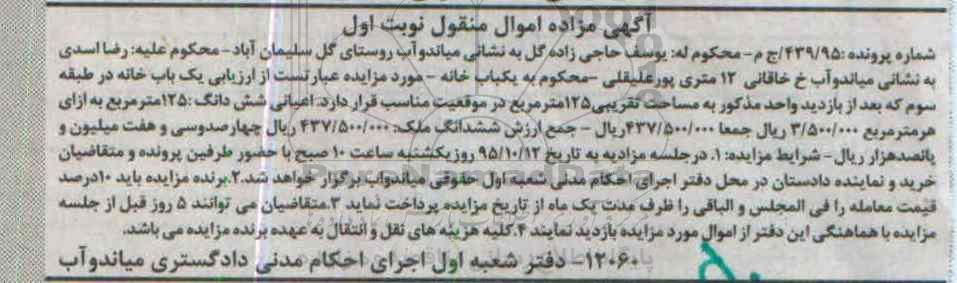 آگهی مزاده اموال منقول نوبت اول
شماره پرونده :۴۳۹/۹۵/ج م- محکوم له: یوسف حاجی زاده گل به نشانی میاندوآب روستای گل سلیمان آباد- محکوم علیه: رضا اسدی
به نشانی میاندوآب خ خاقانی ۱۲ متری پورعلیقلی –محکوم به یکباب خانه – مورد مزایده عبارتست از ارزیابی یک باب خانه در طبقه
سوم که بعد از بازدید واحد مذکور به مساحت تقریبی۱۲۵مترمربع در موقعیت مناسب قرار دارد. اعیانی شش دانگ :۱۲۵مترمربع به ازای
هرمترمربع ۳/۵۰۰/۰۰۰ ریال جمعا ۴۳۷/۵۰۰/۰۰۰ریال – جمع ارزش ششدانگ ملک: ۴۳۷/۵۰۰/۰۰۰ ریال چهارصدوسی و هفت میلیون و
پانصدهزار ریال – شرایط مزایده: ۱. درجلسه مزادیه به تاریخ ۹۵/۱۰/۱۲ روز یکشنبه ساعت ۱۰ صبح با حضور طرفین پرونده و متقاضیان
خرید و نماینده دادستان در محل دفتر اجرای احکام مدنی شعبه اول حقوقی میاندواب برگزار خواهد شد.۲.برنده مزایده باید ۱۰درصد
قیمت معامله را فی المجلس و الباقی را ظرف مدت یک ماه از تاریخ مزایده پرداخت نماید ۳.متقاضیان می توانند ۵ روز قبل از جلسه
مزایده با هماهنگی این دفتر از اموال مورد مزایده بازدید نمایند ۴.کلیه هزینه های نقل و انتقال به عهده برنده مزایده می باشد.
۱۲۰۶۰- دفتر شعبه اول اجرای احکام مدنی دادگستری میاندوآب